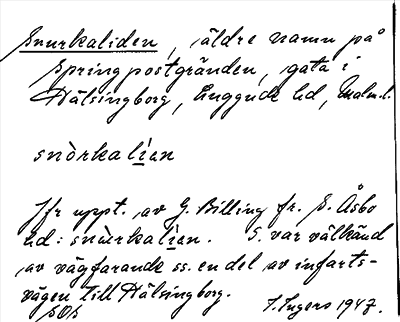 Snurkaliden, äldre namn på
Springpostgränden, gata i
Hälsingborg, Luggude hd, Malm.l.
snòrkalien
Jfr uppt. av G. Billing fr. S. Åsbo
hd: snùrkalien. S. var välkänd
av vägfarande ss. en del av infarts-
vägen till Hälsingborg.
I. Ingers 1947.